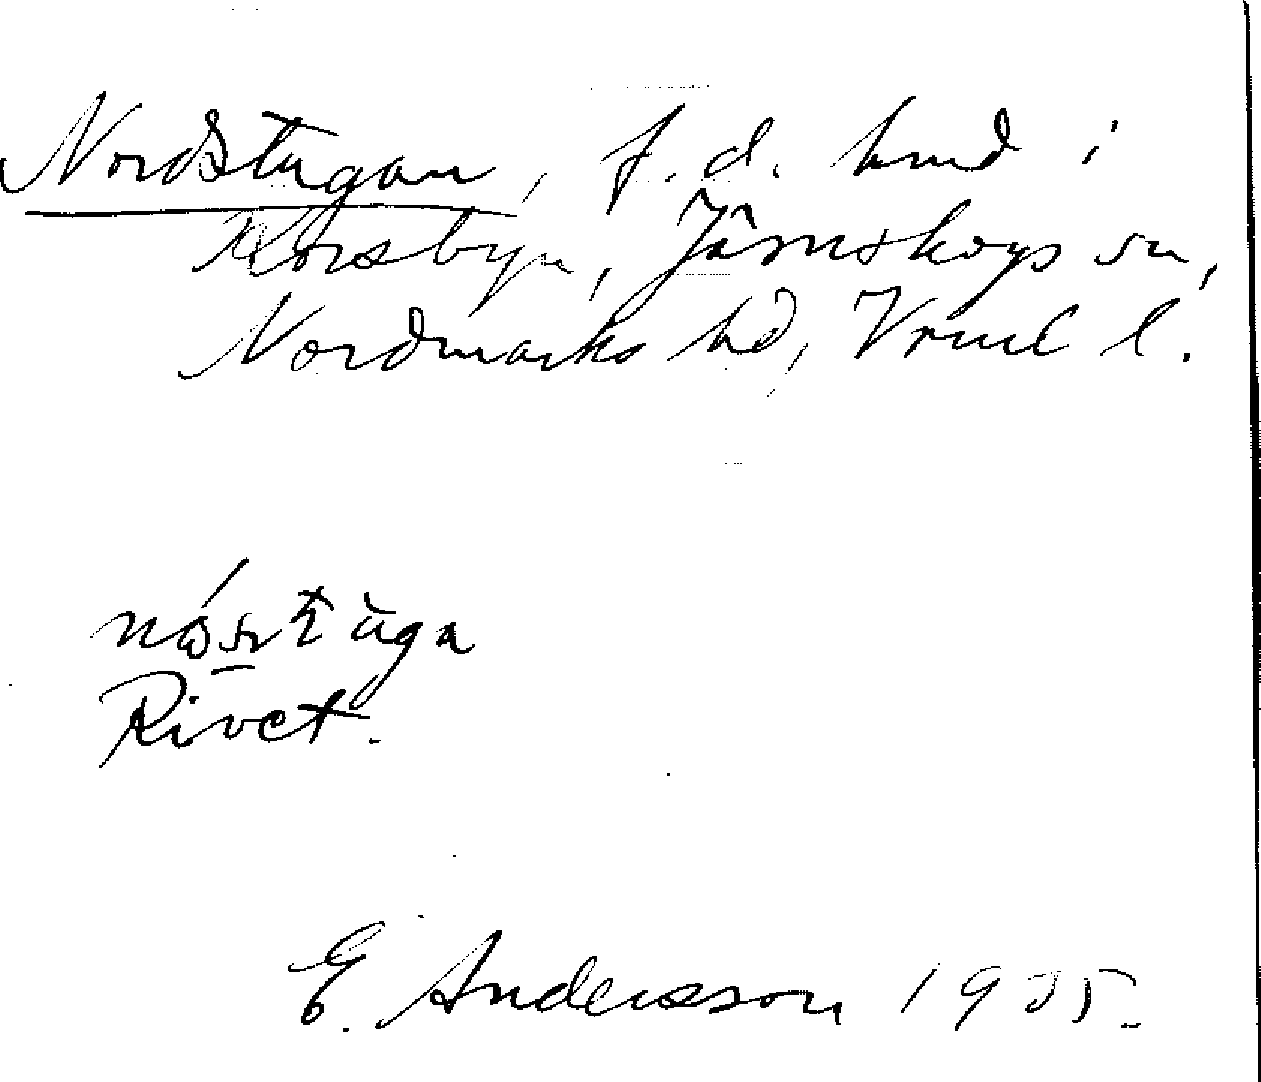 Nordstugan, f.d. hmd i
Korsbyn, Järnskogs sn,
Nordmarks hd, Vrml l.
Rivet.
E. Andersson 1935.